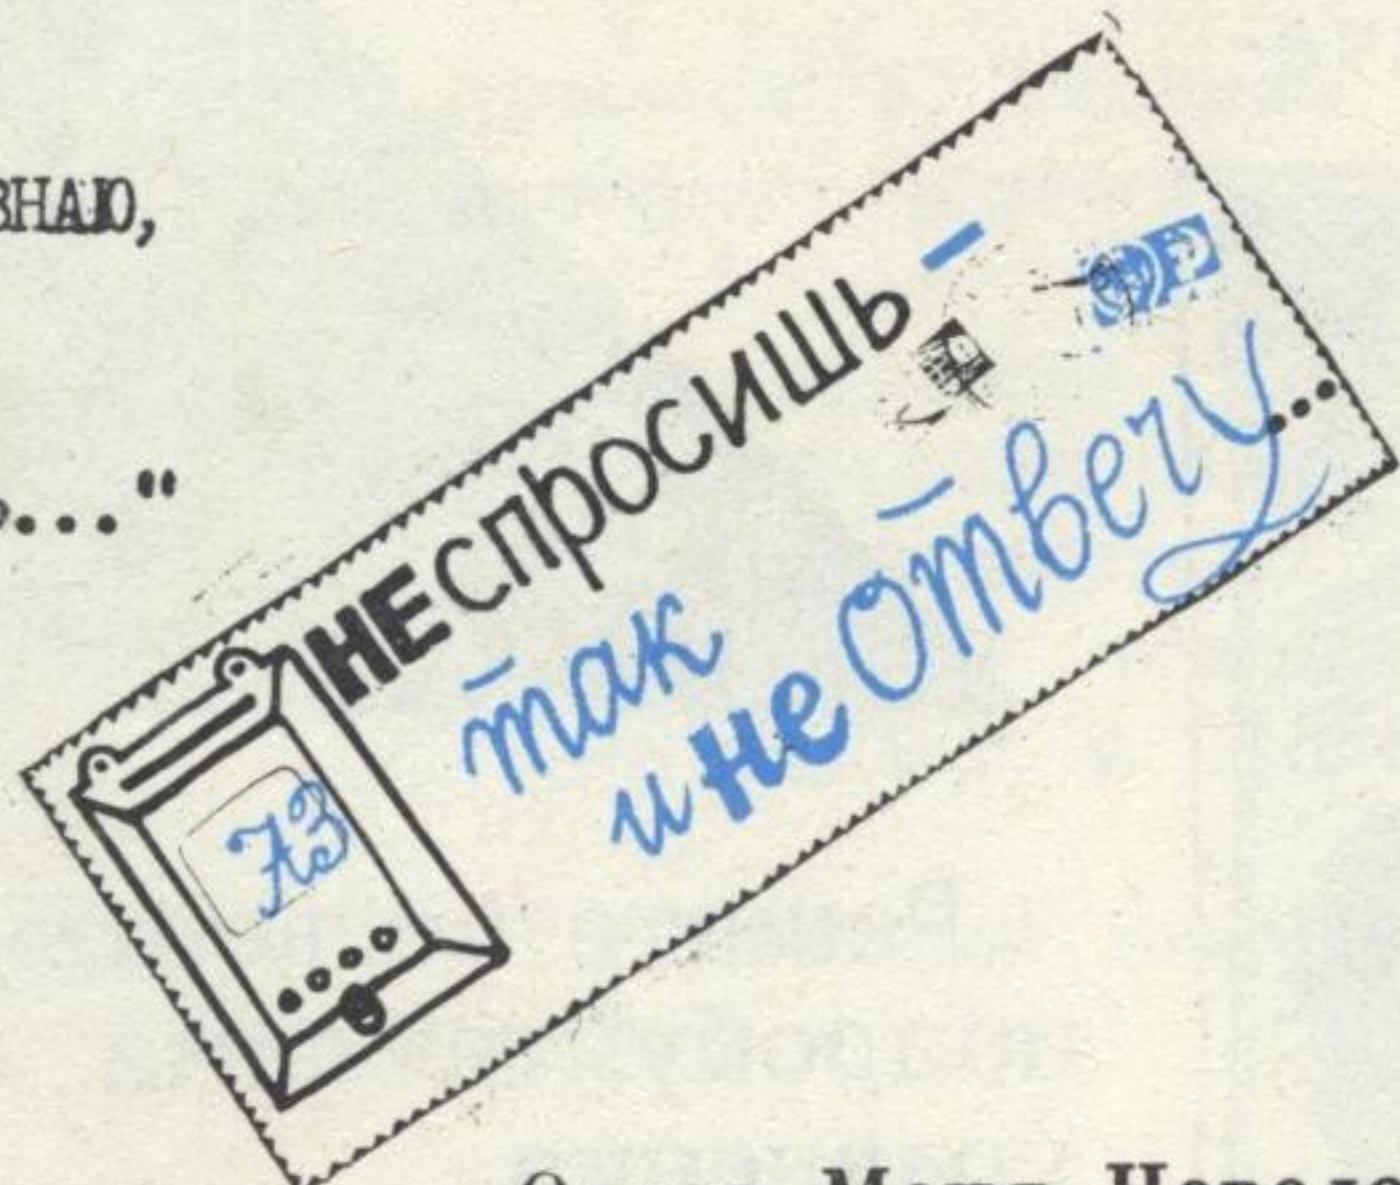 ЗНАЮ,
..."
НЕ спросишь –
так
и не ответу...
АЗ